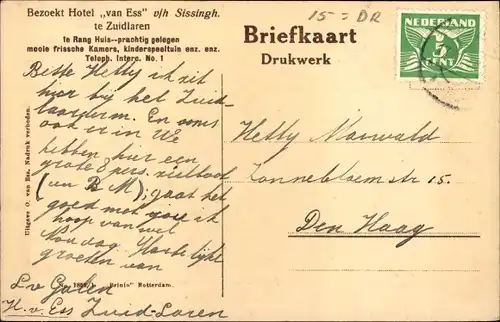 Bezoekt Hotel „van Ess" v/h Sissingh.
te Zuidlaren
1e Rang Huis--prachtig gelegen
mooie frissche Kamers, kinderspeeltuin enz. enz.
Teleph. Interc. No. 1
15 - = DR
Briefkaart
Drukwerk
NEDERLAND
5
CENT
Beste Hetty ik zit
hier bij het Zuid-
laarderm. En oms
ook er in We
hebben hier een
grote 8 pers. zeilboot
(van B M), gaat het
goed met jou ik
hoop van wel
Hartelijke
groeten van
L v Galen
H. v. Ess Zuid-Laren
Hetty
Zonnebloemstr 15.
Den Haag
Uitgave O. van Ess. Nadruk verboden.
„Brinio" Rotterdam.